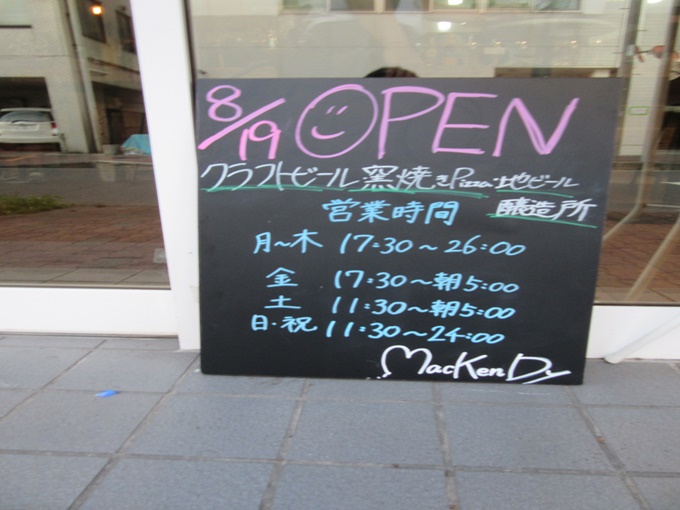 8/19 OPEN
クラフトビール 窯焼きPizza・地ビール
醸造所
営業時間
月〜木 17:30〜26:00
金 17:30〜朝5:00
土 11:30〜朝5:00
日・祝 11:30〜24:00
MacKenDy